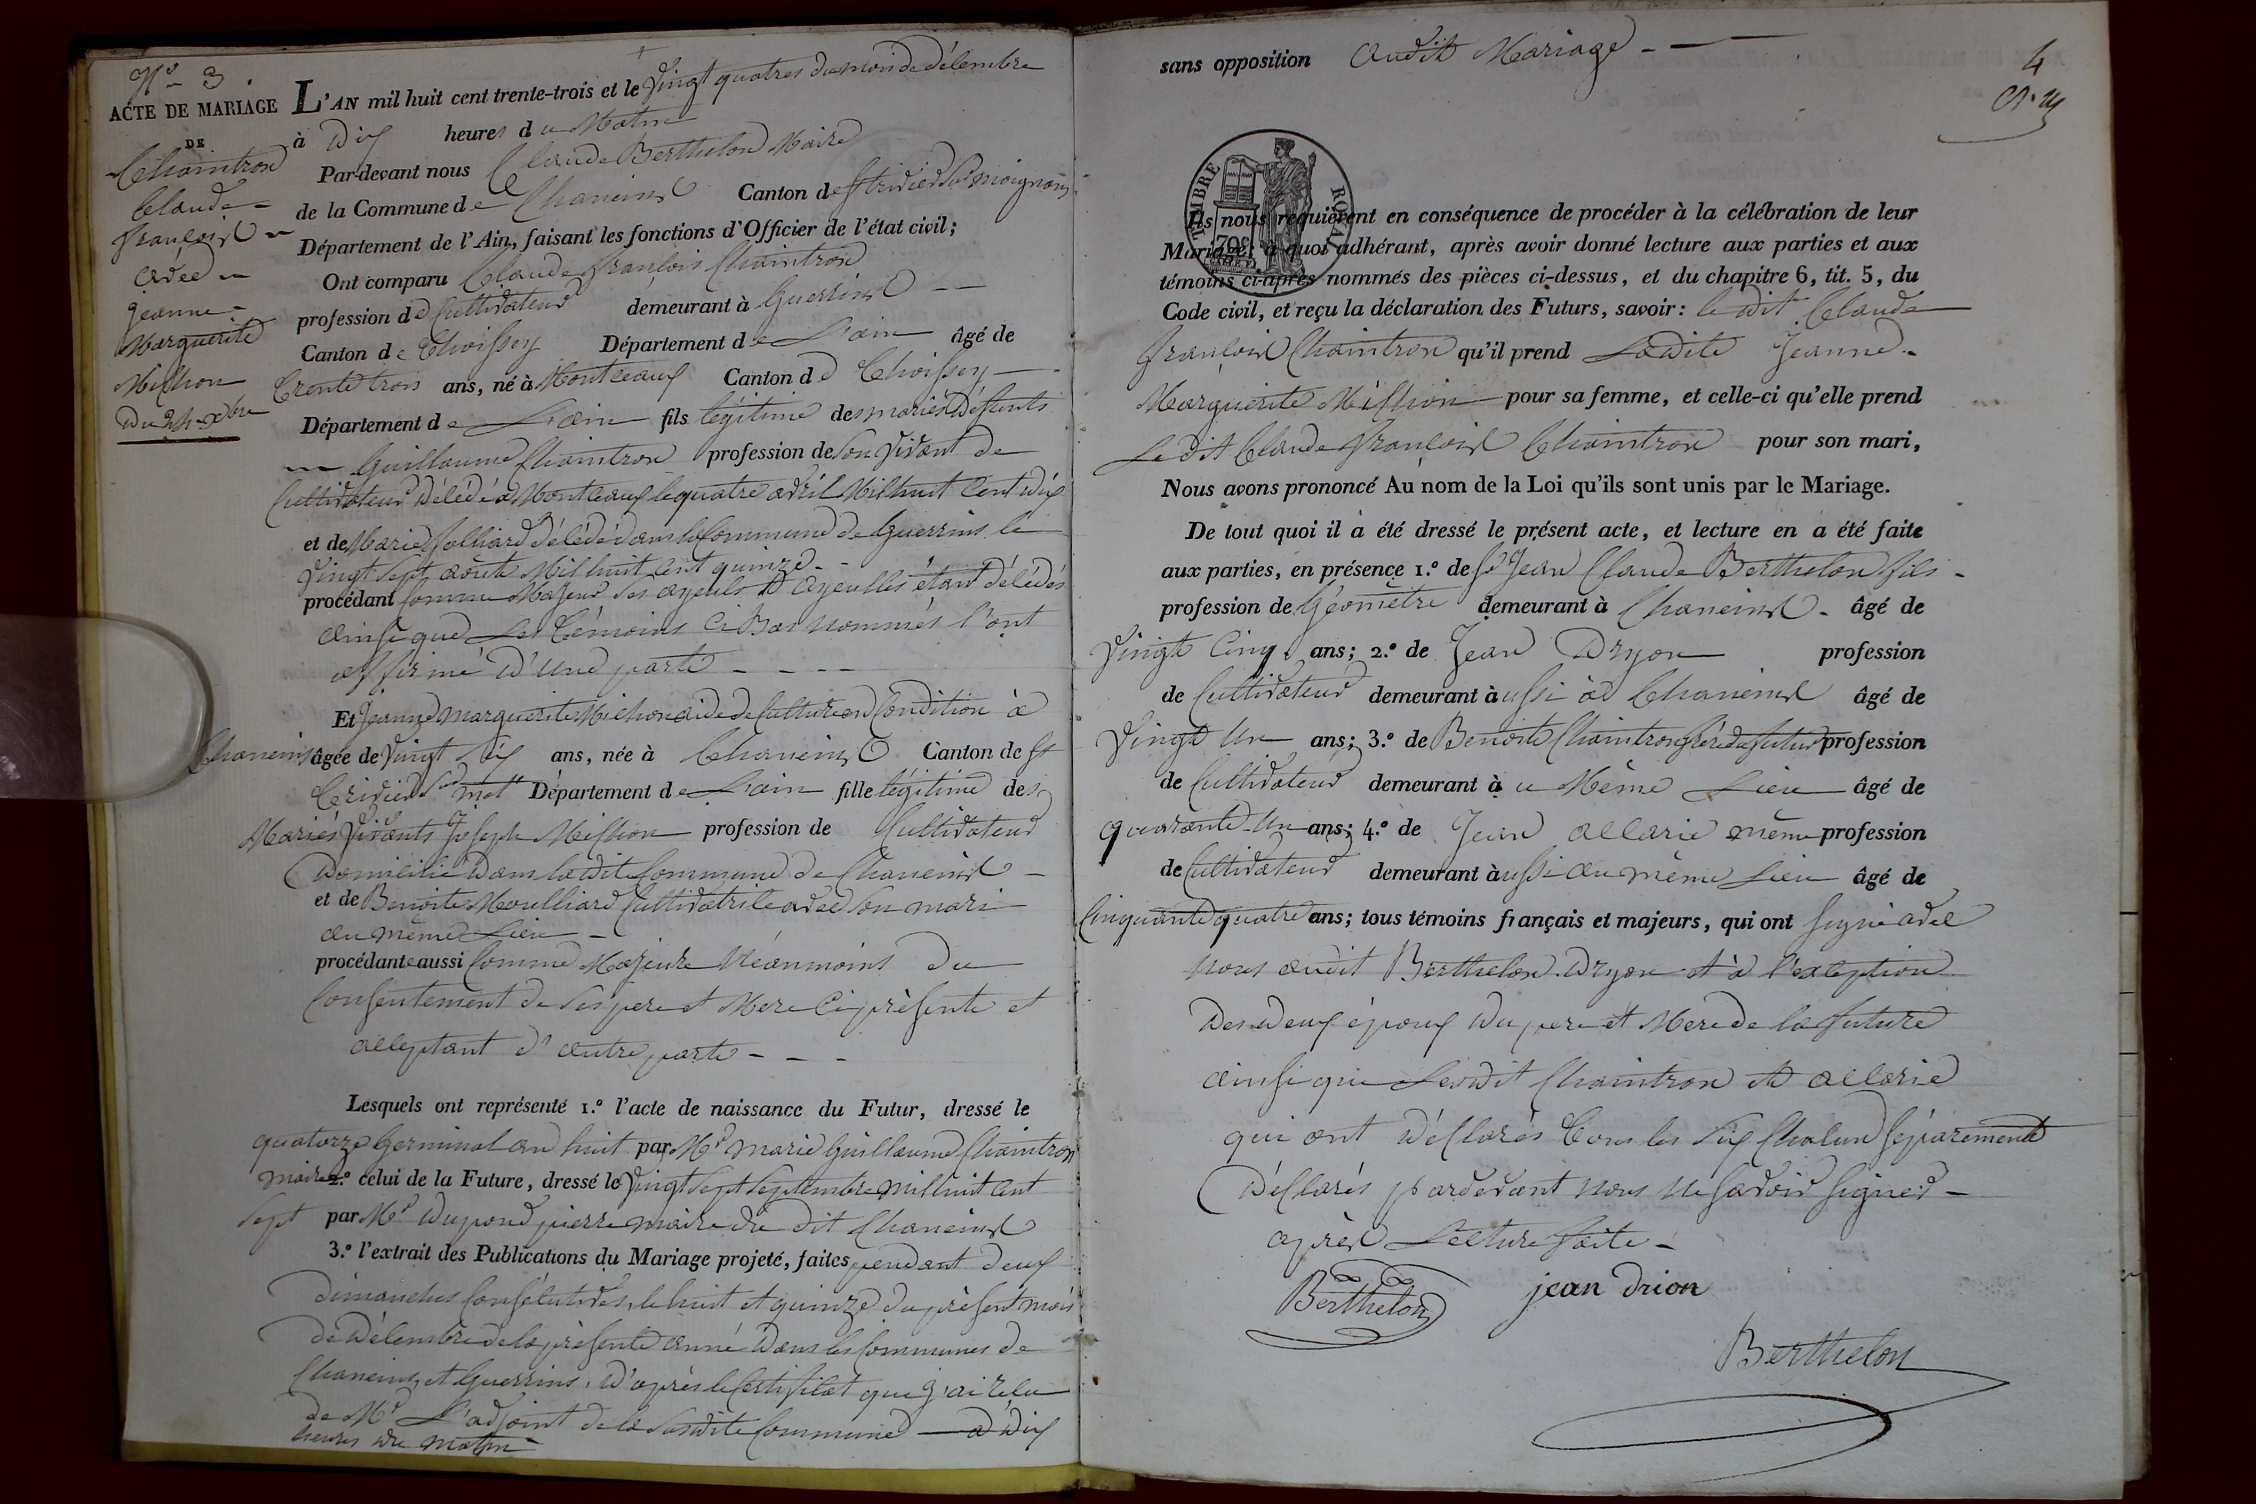 N° 3.
ACTE DE MARIAGE
DE
Chaintron
Claude
françois
avec
jeanne
Marguerite
Michon
du 24 xbre
L'AN mil huit cent trente-trois et le vingt quatres du mois de décembre
à dix heures du Matin
Par-devant nous Claude Berthelon Maire
de la Commune de Chaneins Canton de St trivier Sr moignans
Département de l'Ain, faisant les fonctions d'Officier de l'état civil;
Ont comparu Claude françois Chaintron
profession de Cultivateur demeurant à Guerrins
Canton de thoissey Département de L'ain âgé de
trente trois ans, né à Montceaux Canton de thoissey
Département de L'ain fils légitime des mariés défunts
Guillaume Chaintron profession de Son vivant de
Cultivateur décédé à Montceaux le quatre avril Mil huit Cent dix
et de Marie décédé dans la Commune de Guerrins le
vingt sept août Mil huit cent quinze
procédant Comme Majeur Ses ayeuls et ayeulles étant décédés
ainsi que les témoins Ci Bas nommés l'ont
affirmé d'une parte
Et Jeanne marguerite Michon aide de Culture en Condition à
Chaneins âgée de vingt six ans, née à Chaneins Canton de St
trivier Sr mots Département de L'ain fille légitime des
Mariés vivants Joseph Michon profession de Cultivateur
domicilié dans la dite Commune de Chaneins
et de Benoite Moulliard Cultivatrice avec Son mari
au même Lieu
procédante aussi Comme Majeure Néanmoins du
Consentement de Ses pere et Mere Ci présente et
acceptant d'autre parte
Lesquels ont représenté 1.° l'acte de naissance du Futur, dressé le
quatorze Germinal an huit par Mr marie Guillaume Chaintron
maire 2.° celui de la Future, dressé le vingt sept Septembre mil huit cent
sept par Mr dupond pierre maire du dit Chaneins
3.° l'extrait des Publications du Mariage projeté, faites pendant deux
dimanches Consécutives, le huit et quinze du présent mois
de décembre de la présente année dans les Communes de
Chaneins et Guerrins, d'après le Certificat que j'ai relu
de Mr L'adjoint de la Susdite Commune à dix
heures du matin
4
sans opposition audit Mariage
TIMBRE ROYAL
Ils nous requièrent en conséquence de procéder à la célébration de leur
Mariage; à quoi adhérant, après avoir donné lecture aux parties et aux
témoins ci-après nommés des pièces ci-dessus, et du chapitre 6, tit. 5, du
Code civil, et reçu la déclaration des Futurs, savoir: le dit Claude
françois Chaintron qu'il prend Ladite Jeanne
Marguerite Michon pour sa femme, et celle-ci qu'elle prend
Le dit Claude françois Chaintron pour son mari,
Nous avons prononcé Au nom de la Loi qu'ils sont unis par le Mariage.
De tout quoi il a été dressé le présent acte, et lecture en a été faite
aux parties, en présence 1.° de Sr Jean Claude Berthelon fils
profession de Géomètre demeurant à Chaneins âgé de
vingt Cinq ans; 2.° de Jean Dryon profession
de Cultivateur demeurant aussi à Chaneins âgé de
vingt Un ans; 3.° de Benoite Chaintron frère du futur profession
de Cultivateur demeurant au Même Lieu âgé de
quarante Un ans; 4.° de Jean allarie même profession
de Cultivateur demeurant aussi au même Lieu âgé de
Cinquante quatre ans; tous témoins français et majeurs, qui ont Signé avec
nous audit Berthelon Dryon et à l'exception
des deux époux du pere et Mere de la future
ainsi que Lesdit Chaintron et allarie
qui ont déclarés tous les Six Chacun Séparement
Déclarés pardevant nous ne Savoir Signer
après Lecture faite
Berthelon jean drion
Berthelon